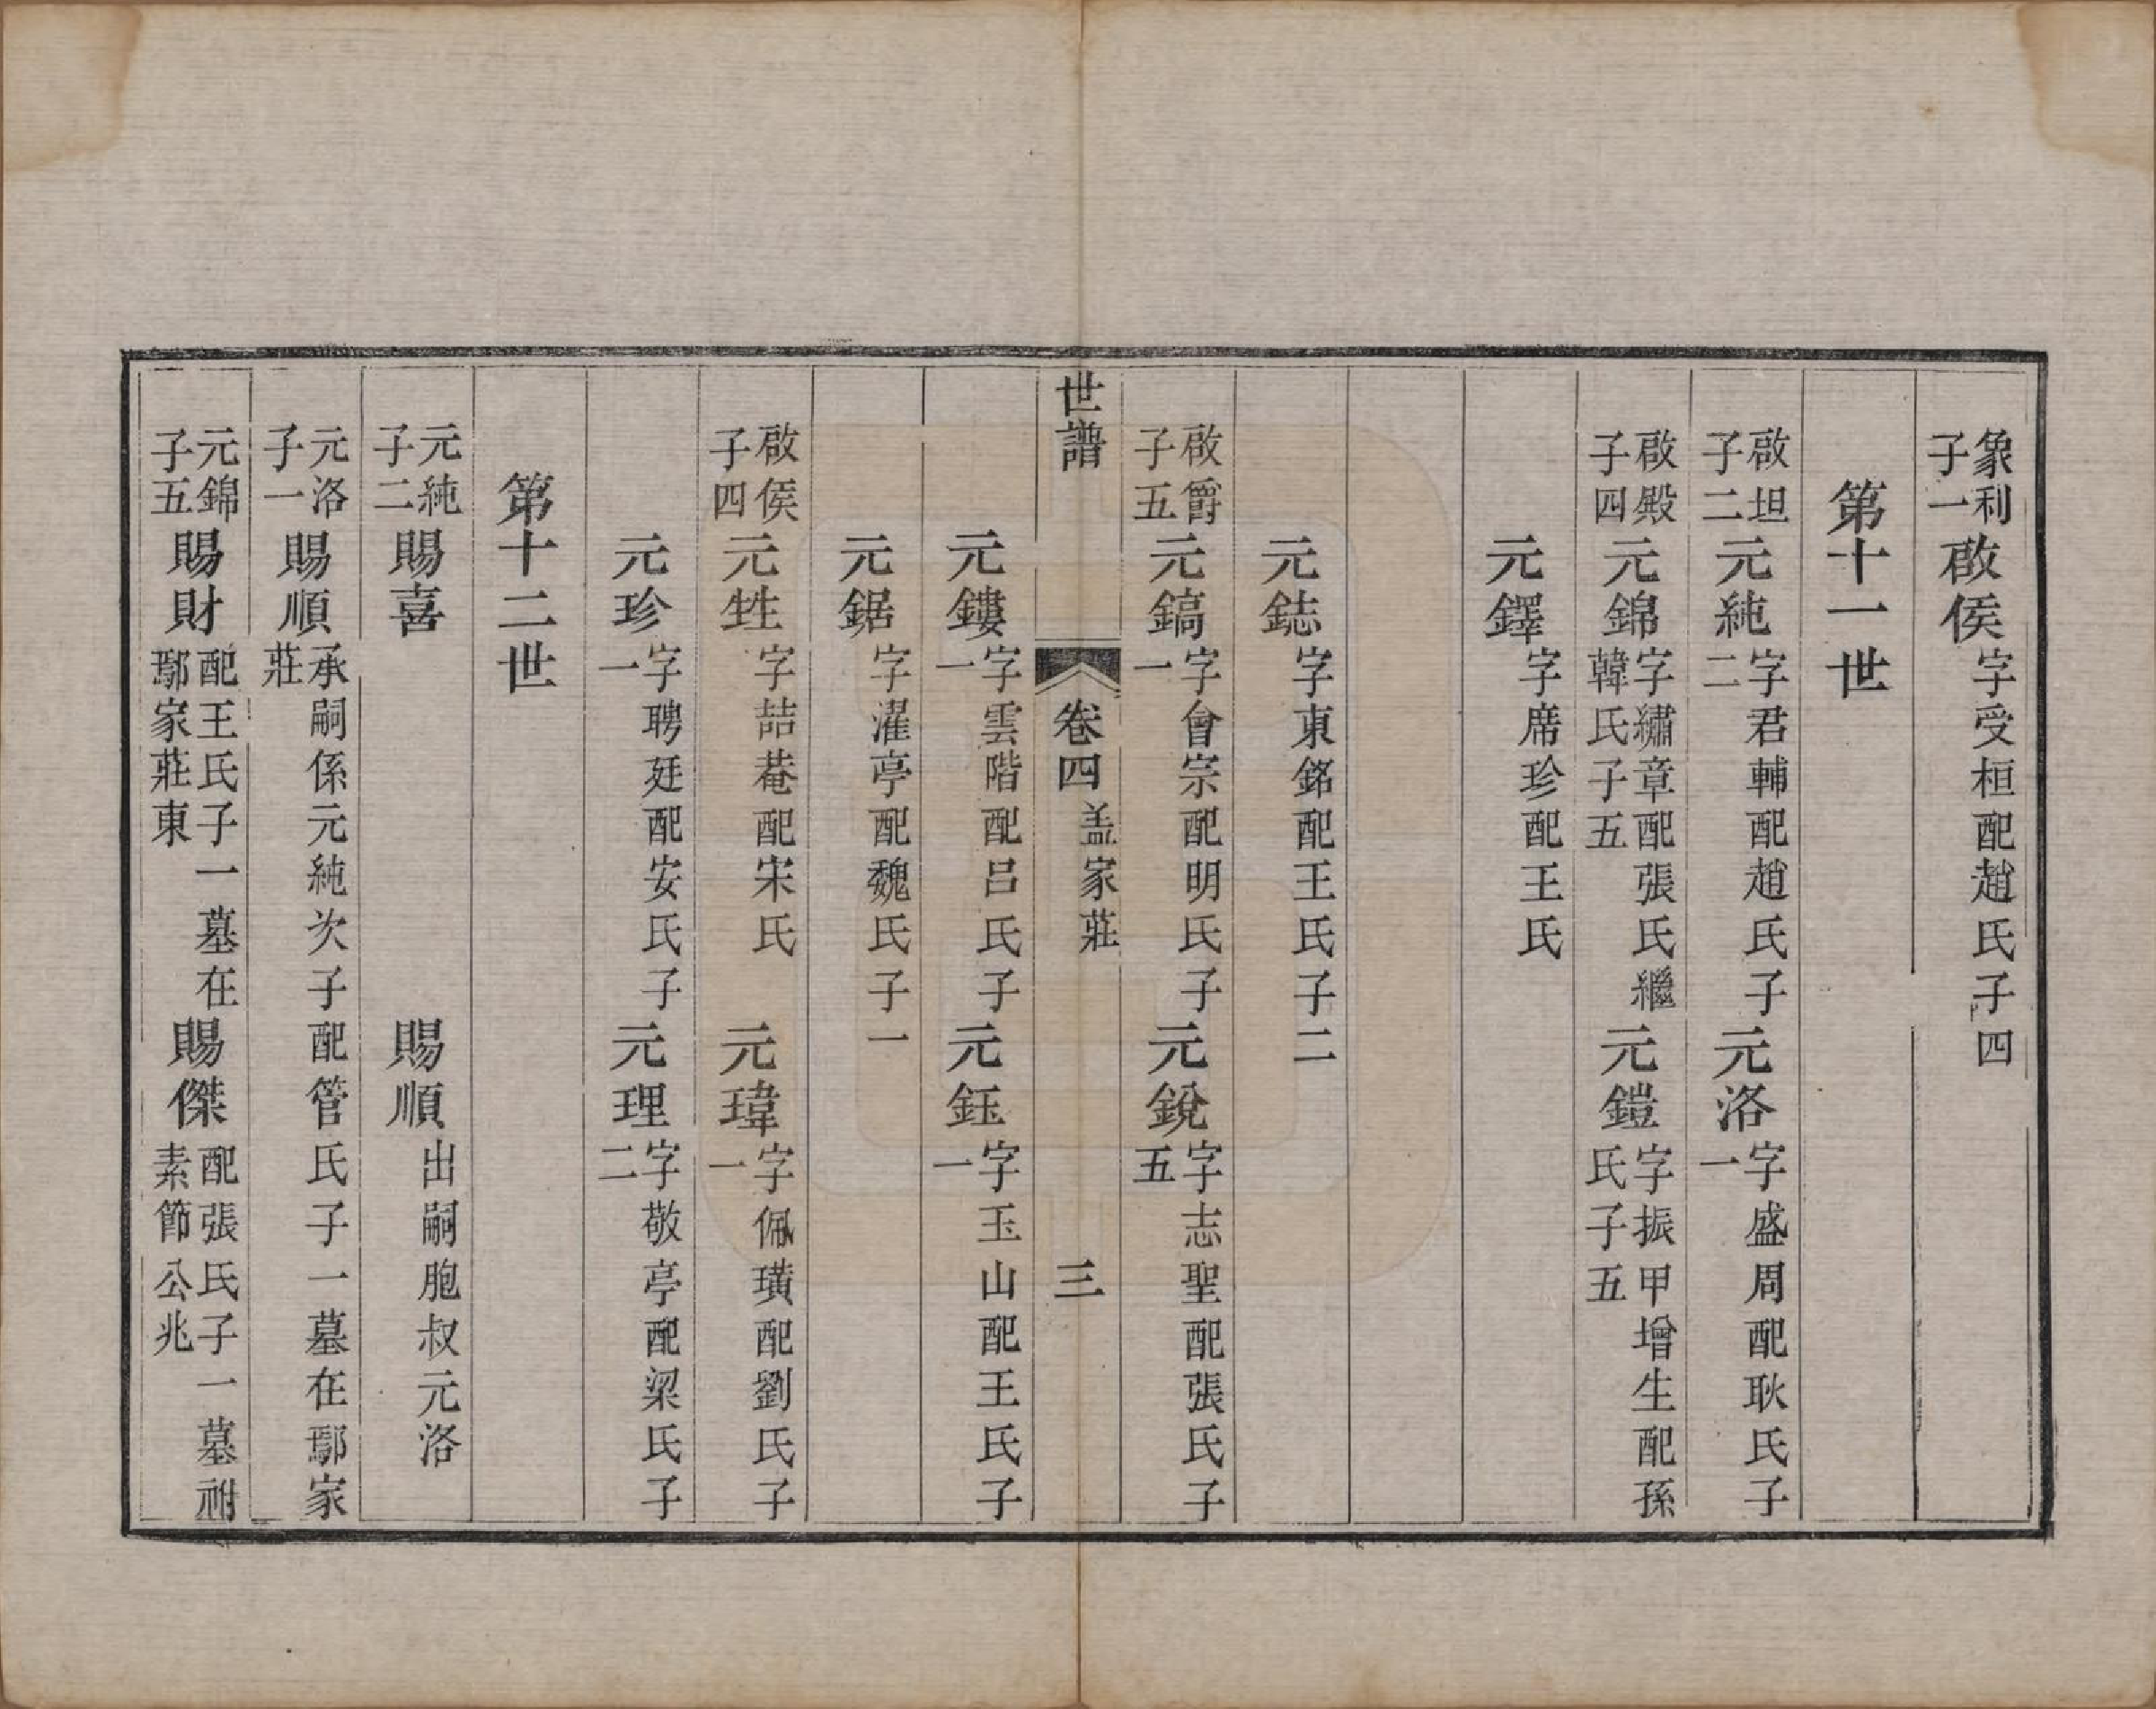 象利子一 啟侯 字受桓配趙氏子四
第十一世
啟坦子二 元純 字君輔配趙氏子二 元洛 字盛周配耿氏子一
啟殿子四 元錦 字繡章配張氏繼韓氏子五 元鎧 字振甲增生配孫氏子五
元鐸 字席珍配王氏
元鋕 字東銘配王氏子二
啟爵子五 元鎬 字會宗配明氏子一 元銳 字志聖配張氏子五
世譜 卷四 盖家莊 三
元鏤 字雲階配呂氏子一 元鈺 字玉山配王氏子一
元鋸 字濯亭配魏氏子一
啟侯子四 元甡 字喆菴配宋氏 元瑋 字佩璜配劉氏子一
元珍 字聘廷配安氏子一 元理 字敬亭配梁氏子二
第十二世
元純子二 賜喜 賜順 出嗣胞叔元洛
元洛子一 賜順 承嗣係元純次子配管氏子一墓在鄢家莊
元錦子五 賜財 配王氏子一墓在鄢家莊東 賜傑 配張氏子一墓祔素節公兆